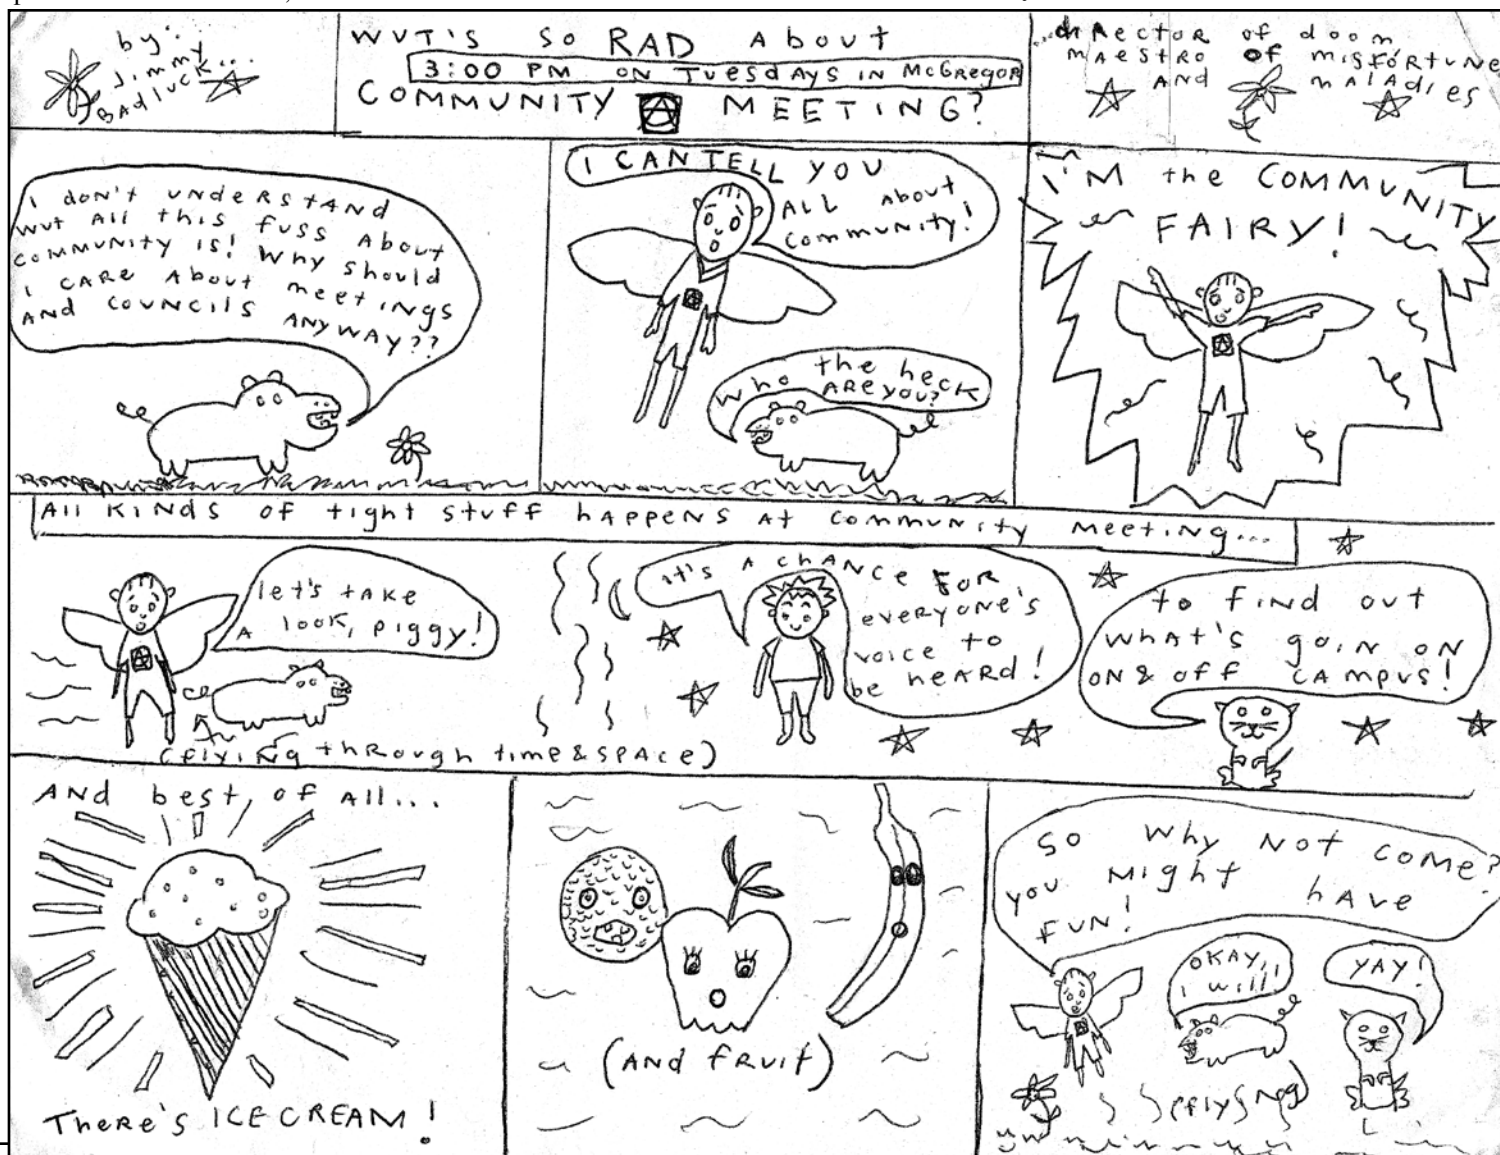 by:
Jimmy
BADluck...
WUT'S SO RAD About
3:00 PM ON TuesdAys IN McGRegoR
COMMUNITY Ⓐ MEETING?
...diRectoR of doom
mAestRo of misfORtuNe
AND mAlAdies
I doN't uNdeRstAND
wut All this fuss About
commuNity is! Why should
I cARe About meetiNgs
AND couNcils ANyWAy??
I CAN TELL YOU
ALL About
commuNity!
Who the heck
ARe you?
I'M the COMMUNITY
FAIRY!
All KiNds of tight stuff hAppeNs At commuNity meetiNg...
let's tAke
A look, piggy!
(flyiNg thRough time & spAce)
It's A chANce FoR
everyoNe's
voice to
be heARd!
to fiNd out
whAt's goiN oN
oN & off cAmpus!
AND best of All...
TheRe's ICE CREAM!
(AND fRuit)
So why Not come?
you Might hAve
fuN!
OKAY,
I will!
YAY!
(flyiNg)